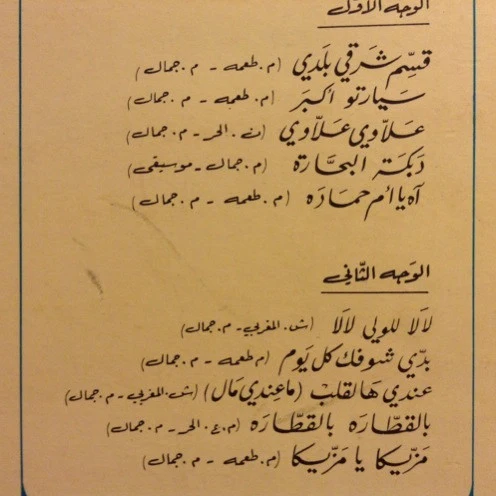 الوجه الأول
قسّم شرقي بلدي (م. طعمه - م. جمال)
سيارتو أكبر (م. طعمه - م. جمال)
علّاوي علّاوي (ن. الحر - م. جمال)
دبكة البحّارة (م. جمال - موسيقى)
آه يا أم حمادَه (م. طعمه - م. جمال)
الوَجه الثّاني
لالا للولي لالا (ش. المغربي - م. جمال)
بدّي شوفك كل يَوم (م طعمه - م. جمال)
عندي هالقلب (ماعندي مال) (ش. المغربي - م. جمال)
بالقطّارَه بالقطّارَه (م. ع. الحر - م. جمال)
مَزّيكا يا مَزّيكا (م. طعمه - م. جمال)